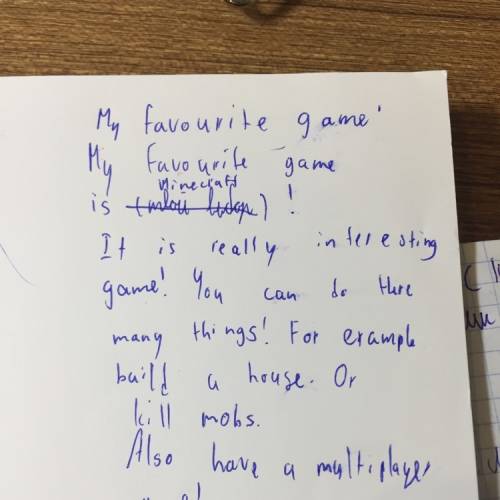 My favourite game'
My favourite game
Minecraft
is ( ) !
It is really interesting
game! You can do there
many things! For example
build a house. Or
kill mobs.
Also have a multiplayer